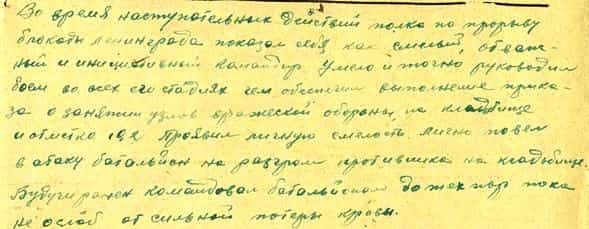 Во время наступательных действий полка по прорыву
блокады Ленинграда показал себя как смелый, отваж-
ный и инициативный командир. Умело и точно руководил
боем во всех его стадиях чем обеспечил выполнение прика-
за о занятии узлов вражеской обороны, на кладбище
и отметка 19,2 Проявил личную смелость. Лично повел
в атаку батальон на разгром противника на кладбище.
Будучи ранен командовал батальоном до тех пор пока
не ослаб от сильной потери крови.